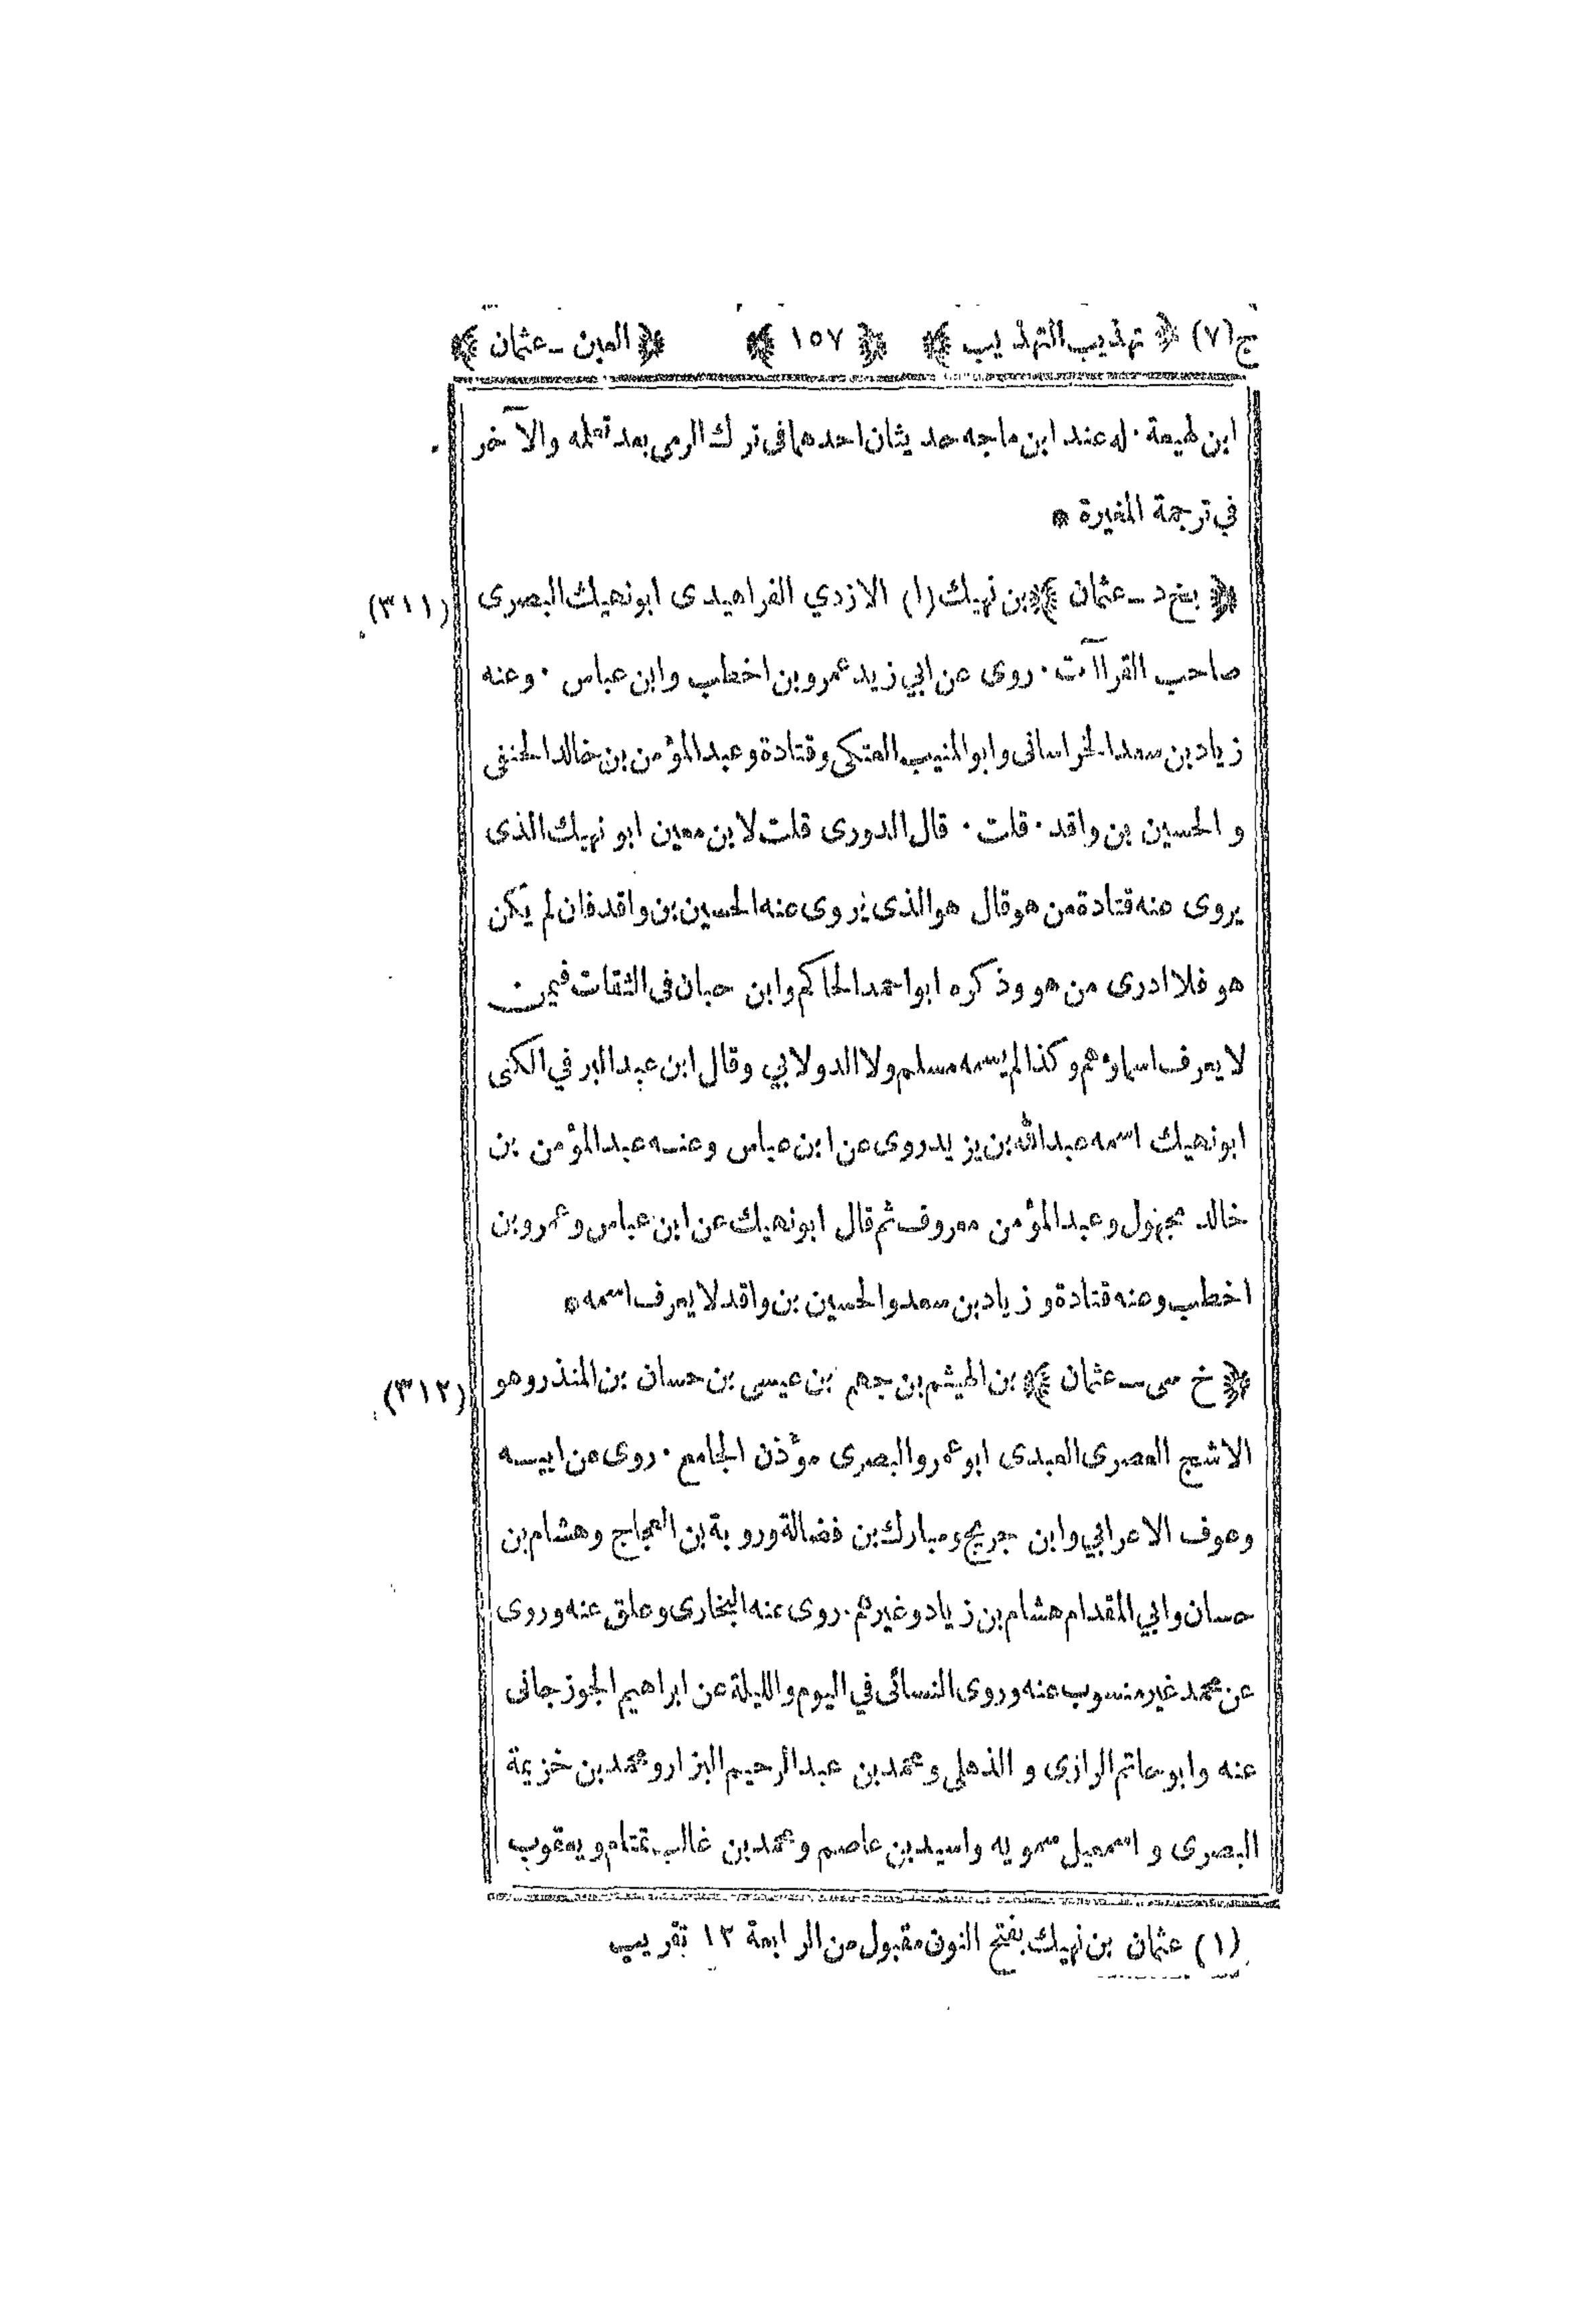 ج(٧) ﴿ تهذيب التهذيب ﴾ ﴿ ١٥٧ ﴾ ﴿ العين - عثمان ﴾
ابن لهيعة · له عند ابن ماجه حديثان احدهما فى ترك الرمى بعد تعلمه والآخر
في ترجمة المغيرة *
﴿ بخ د - عثمان ﴾ بن نهيك (١) الازدي الفراهيدى ابونهيك البصرى (٣١١)
صاحب القراآت · روى عن ابي زيد عمرو بن اخطب وابن عباس · وعنه
زياد بن سعد الخراسانى وابو المنيب العتكى وقتادة وعبد المؤمن بن خالد الحنفى
و الحسين بن واقد · قلت · قال الدورى قلت لابن معين ابو نهيك الذى
يروى عنه قتادة من هو قال هو الذى يروى عنه الحسين بن واقد فان لم يكن
هو فلا ادرى من هو وذكره ابو احمد الحاكم وابن حبان فى الثقات فيمن
لا يعرف اسماؤهم وكذا لم يسمه مسلم ولا الدولابي وقال ابن عبد البر في الكنى
ابونهيك اسمه عبد الله بن يزيد روى عن ابن عباس وعنه عبد المؤمن بن
خالد مجهول وعبد المؤمن معروف ثم قال ابونهيك عن ابن عباس وعمرو بن
اخطب وعنه قتادة و زياد بن سعد والحسين بن واقد لا يعرف اسمه *
﴿ خ سى - عثمان ﴾ بن الهيثم بن جهم بن عيسى بن حسان بن المنذر وهو (٣١٢)
الاشج العصرى العبدى ابو عمرو البصرى مؤذن الجامع · روى عن ابيه
وعوف الاعرابي وابن جريج ومبارك بن فضالة ورو بة بن العجاج وهشام بن
حسان وابي المقدام هشام بن زياد وغيرهم · روى عنه البخارى وعلق عنه وروى
عن محمد غير منسوب عنه وروى النسائى في اليوم والليلة عن ابراهيم الجوزجانى
عنه وابو حاتم الرازى و الذهلى ومحمد بن عبد الرحيم البزار ومحمد بن خزيمة
البصرى و اسمعيل سمويه واسيد بن عاصم ومحمد بن غالب تمتام ويعقوب
(١) عثمان بن نهيك بفتح النون مقبول من الرابعة ١٢ تقريب